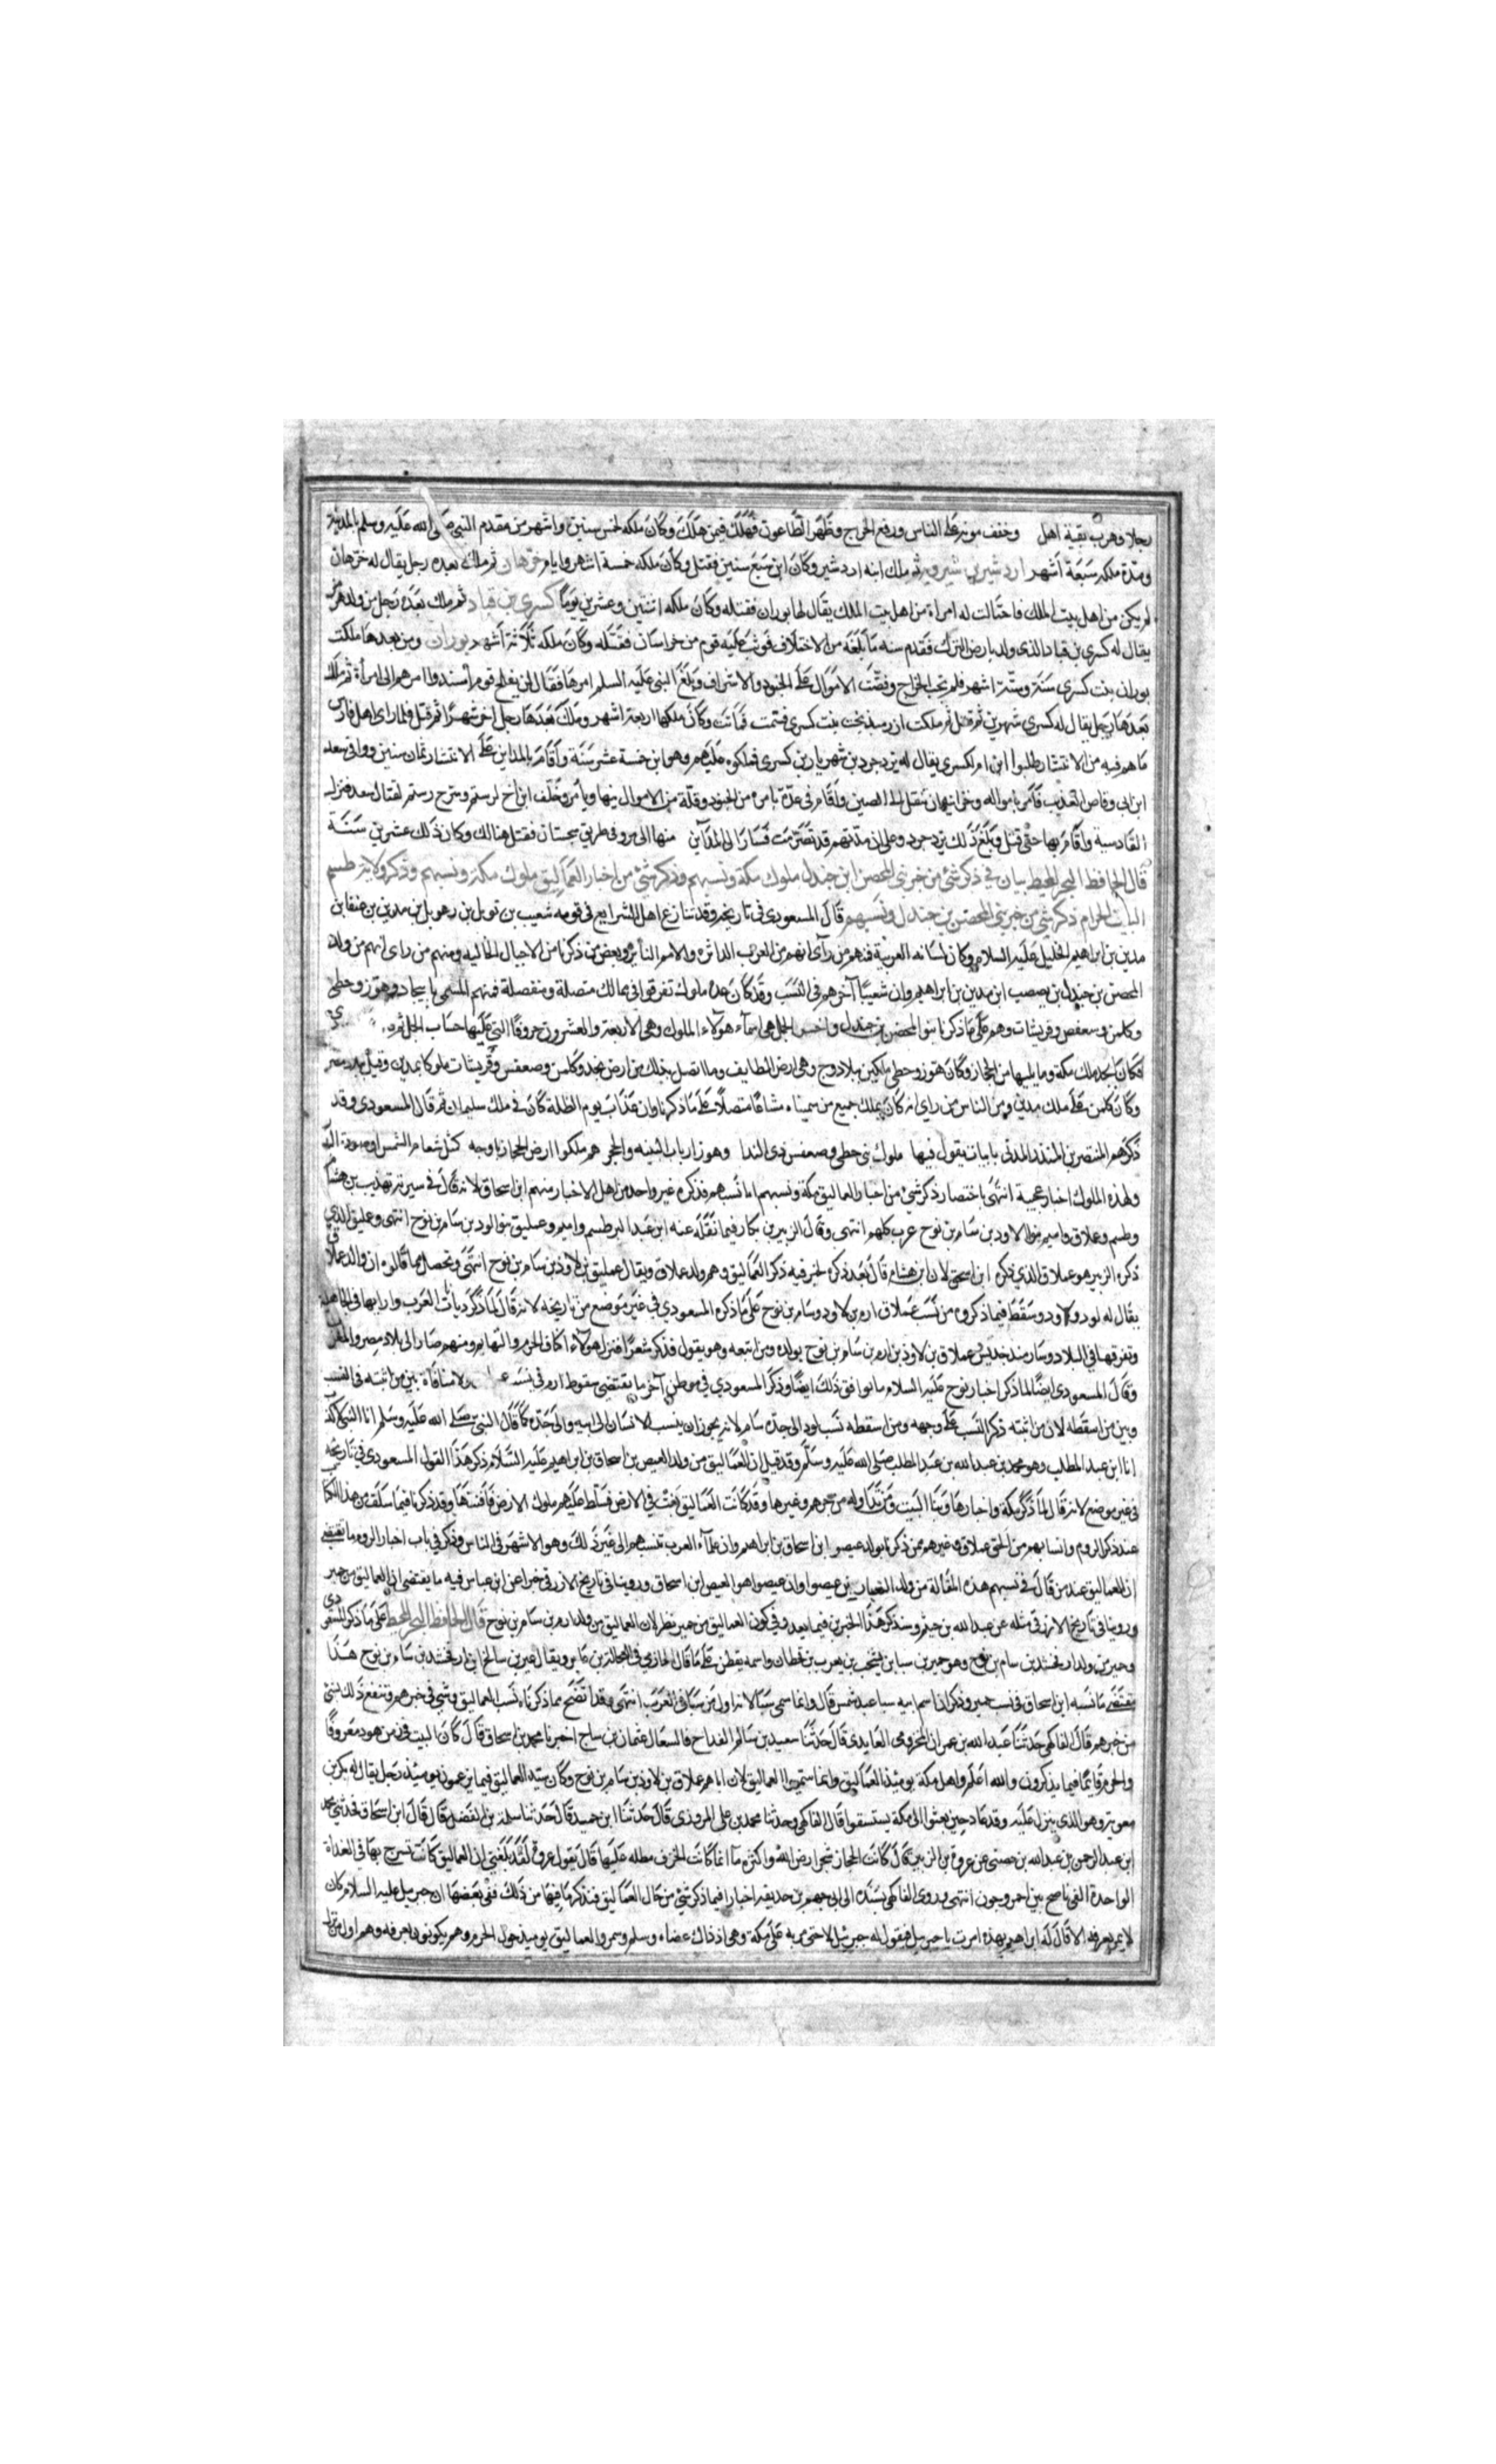 رجلا وهرب بقية اهل وخفف مونه على الناس ورفع الخراج وظهر الطاعون فهلك فيمن هلك وكان ملكه لخمس سنين واشهر من مقدم النبي صلى الله عليه وسلم المدينة
ومدة ملكه سبعة اشهر اردشير بن شيرويه ثم ملك ابنه اردشير وكان ابن سبع سنين فقتل وكان ملكه خمسة اشهر وايام خرهان ثم ملك بعده رجل يقال له خرهان
لم يكن من اهل بيت الملك فاحتالت له امراة من اهل بيت الملك يقال لها بوران فقتله وكان ملكه اثنتين وعشرين يوما كسرى بن قباد ثم ملك بعده رجل من ولد هرمز
يقال له كسرى بن قباد الذي ولد بارض الترك فقدم سنه ما بلغه من الاختلاف فوثب عليه قوم من خراسان فقتله وكان ملكه ثلاثة اشهر بوران ومن بعدها ملكت
بوران بنت كسرى سنة وستة اشهر فلم تجب الخراج وفضت الاموال على الجنود والاشراف وبلغ النبي عليه السلم امرها فقال لن يفلح قوم أسندوا امرهم الى امرأة ثم ملك
بعدها رجل يقال له كسرى شهرين ثم قتل ثم ملكت ازرميذنخت بنت كسرى فسمت فماتت وكان ملكها اربعة اشهر وملك بعدها رجل اخر شهرا ثم قتل فلما راى اهل فارس
ما هم فيه من الانتشار طلبوا ابن ام لكسرى يقال له يزدجرد بن شهريار بن كسرى فملكوه عليهم وهو ابن خمسة عشر سنة واقام بالمداين على الانتشار ثمان سنين ووافى سعد
ابن ابى وقاص العذيب فامر باموالة وخزاينه ان تنقل الى الصين واقام في عدة يامره من الجنود وقلة من الاموال وخلف ابن اخ لرستم وسرح رستم لقتال سعد فنزل
القادسية واقام بها حتى قتل وبلغ ذلك يزدجرد وعلم ان مدتهم قد تصرمت فسار الى المدآين منها الى مرو في طريق سجستان فقتل هنالك وكان ذلك عشرين سنة
قال الحافظ البحر المحيط بيان في ذكر شئ من خبر بني المحصن ابن جندل ملوك مكة ونسبهم وذكر شئ من اخبار العماليق ملوك مكة ونسبهم وذكر ولاية طسم
البيت الحرام ذكر شئ من خبر بني المحصن بن جندل ونسبهم قال المسعودي في تاريخه وقد تنازع اهل الشرايع في قومه شعيب بن نويل بن رهويل بن مدين بن عنقا بن
مدين بن ابراهيم الخليل عليه السلام وكان لسانه العربية فمنهم من رآى انهم من العرب الداثره والامم ويعض من ذكرنا من الاجيال الخاليه ومنهم من راى انهم من ولد
المحصن بن جندل بن يعصب ابن مدين بن ابراهيم وان شعيبا آخرهم في النسب وقد كان عدة ملوك تفرقوا في ممالك متصلة ومنفصلة فمنهم المسمى بابيجاد وهوز وحطي
وكلمن وسعفص وقريشات وهم على ما ذكرنا بنوا المحصن بن جندل واحسن الجمل هى اسماء هولاء الملوك وهي الاربعة والعشرون حروفا التي عليها حساب الجمل
فكان ابجد ملك مكة وما يليها من الحجاز وكان هوز وحطي ملكين ببلاد وج وهي ارض الطايف وما اتصل بذلك من ارض نجد وكلمن وصعفس وقريشات ملوكا بمدين وقيل ببلاد مصر
وكان كلمن على ملك مدين ومن الناس من راى انه كان يملك جميع من سمينا مشاعا متصلا على ما ذكرنا وان عذاب يوم الظلة كان في ملك سليمان ثم قال المسعودي وقد
ذكرهم المنتصر بن المنذر المدني بابيات يقول فيها ملوك بني حطي وصعفس ذي الندا وهوز ارباب البنيه والحجر هم ملكوا ارض الحجاز باوجه كمثل شعاع الشمس او صورة البدر
ولهذه الملوك اخبار عجيبة انتهى باختصار ذكر شئ من اخبار العماليق بمكة ونسبهم اما نسبهم فذكره غير واحد من اهل الاخبار منهم ابن اسحاق لانه قال في سيرته تهذيب بن هشام
وطسم وعلاق واميم بنوا لاود بن سام بن نوح عرب كلهم انتهى وقال الزبير بن بكار فيما نقله عنه ابن عبد البر طسم واميم وعمليق بنو الود بن سام بن نوح انتهى وعمليق الذي
ذكره الزبير هو عملاق الذي ذكره ابن اسحق لان ابن هشام قال بعد ذكره لخبر فيه ذكر العماليق وهم ولد عملاق ويقال عمليق بن لاوذ بن سام بن نوح انتهى وتحصل مما قالوه ان والد عملاق
يقال له لود ولاود وسقط فيما ذكروه من نسب عملاق ارم بن لاود وسام بن نوح على ما ذكره المسعودي في غير موضع من تاريخه لانه قال لما ذكر ديانات العرب وارايها في الجاهلية
وتفرقها في البلاد وسار منه جديس عملاق بن لاوذ بن ارم بن سام بن نوح بولده ومن اتبعه وهو يقول فذكر شعرا فنزل هولاء اكناف الحرم والتهايم ومنهم صار الى بلاد مصر والمغرب
وقال المسعودي ايضا لما ذكر اخبار نوح عليه السلام ما نوافق ذلك ايضا وذكر المسعودي في موطن آخر ما يقتضي سقوط ارم في نسبه ولا منافاة بين من اثبته في النسب
وبين من اسقطه لان من اثبته ذكر النسب على وجهه ومن اسقطه نسب لود الى جده سام لانه يجوز ان ينسب الانسان الى ابيه والى جده كما قال النبي صلى الله عليه وسلم انا النبي لا كذب
انا ابن عبد المطلب وهو محمد بن عبد الله بن عبد المطلب صلى الله عليه وسلم وقد قيل ان العماليق من ولد العيص بن اسحاق بن ابراهيم عليه السلام ذكر هذا القول المسعودي في تاريخه
في غير موضع لانه قال لما ذكر مكة واخبارها وبنا البيت ومن تداوله من جرهم وغيرها وقد كانت العماليق بغت في الارض فسلط عليهم ملوك الارض فافنتها وقد ذكرنا فيما سلف من هذا الكتاب
عند ذكر الروم وانسابهم من الحق عملاق وغيرهم ممن ذكرنا بولد عيصو ابن اسحاق بن ابراهيم وان علماء العرب تنسبهم الى غير ذلك وهو الاشهر في الناس وذكر في باب اخبار الروم ما يقتضي
ان العماليق عند من قال في نسبهم هذه المقالة من ولد بن عيصوا وان عيصوا هو العيص ابن اسحاق وروينا في تاريخ الازرقي خبرا عن ابن عباس فيه ما يقتضي ان العماليق من حمير
وروينا في تاريخ الازرقي مثله عن عبد الله بن خيثم وسنذكر هذا الخبرين فيما بعد وفي كون العماليق من حمير نظر لان العماليق من ولد ارم بن سام بن نوح قال الحافظ البحر المحيط على ما ذكر المسعودي
وحمير من ولد ارفخشد بن سام بن نوح وهو حمير بن سبا بن يشحب بن يعرب بن قحطان واسمه يقطن على ما قال الحازمي في العجالة بن عابر ويقال عبر بن سالخ بن ارفخشد بن سام بن نوح هذا
يقتضي ما نسبه ابن اسحاق في نسب حمير وذكر ان اسم ابيه سبا عبد شمس قال وانما سمي سبا لانه اول من سبا في العرب انتهى وقد اتضح مما ذكرناه نسب العماليق وشي في خبرهم ونتبع ذلك بشئ
من خبرهم قال الفاكهي حدثنا عبد الله بن عمران المخزومي العابدي قال حدثنا سعيد بن سالم القداح قال عثمان بن ساج اخبرنا محمد بن اسحاق قال كان البيت في زمن هود معروفا
والحرم قايما فيما يذكرون والله اعلم واهل مكة يوميذ العماليق وانما سموا العماليق لان اباهم عملاق بن لاوذ بن سام بن نوح وكان سيد العماليق فيما يزعمون يوميذ رجل يقال له بكر بن
معوية وهو الذي ينزل عليه وفد عاد حين بعثوا الى مكة يستسقوا قال الفاكهي وحدثنا محمد بن على المروزي قال حدثنا ابن حميد قال حدثنا سلمة بن الفضل قال قال ابن اسحاق فحدثني محمد
ابن عبد الرحمن بن عبد الله بن حصين عن عروة بن الزبير قال كانت الحجاز اشجر ارض الله واكثره مآ انما كانت الحرف مظله عليها قال يقول عروة لقد بلغني ان العماليق كانت تسرح بها في الغداة
الواحدة الفى ناضح بين احمر وجون انتهى وروى الفاكهي بسنده الى ابى جهم بن حذيفه اخبارا فيما ذكر شئ من حال العماليق فنذكر ما فيها من ذلك ففي بعضها ان جبريل عليه السلام كان
لا يمر بقرية الا قال له ابراهيم بهذه امرت يا جبريل فيقول له جبرئيل لا حتى مر به على مكة وهى اذ ذاك عضاه وسلم وسمر والعماليق يوميذ حول الحرم وهم يكونون بعرفه وهم اول من نزل